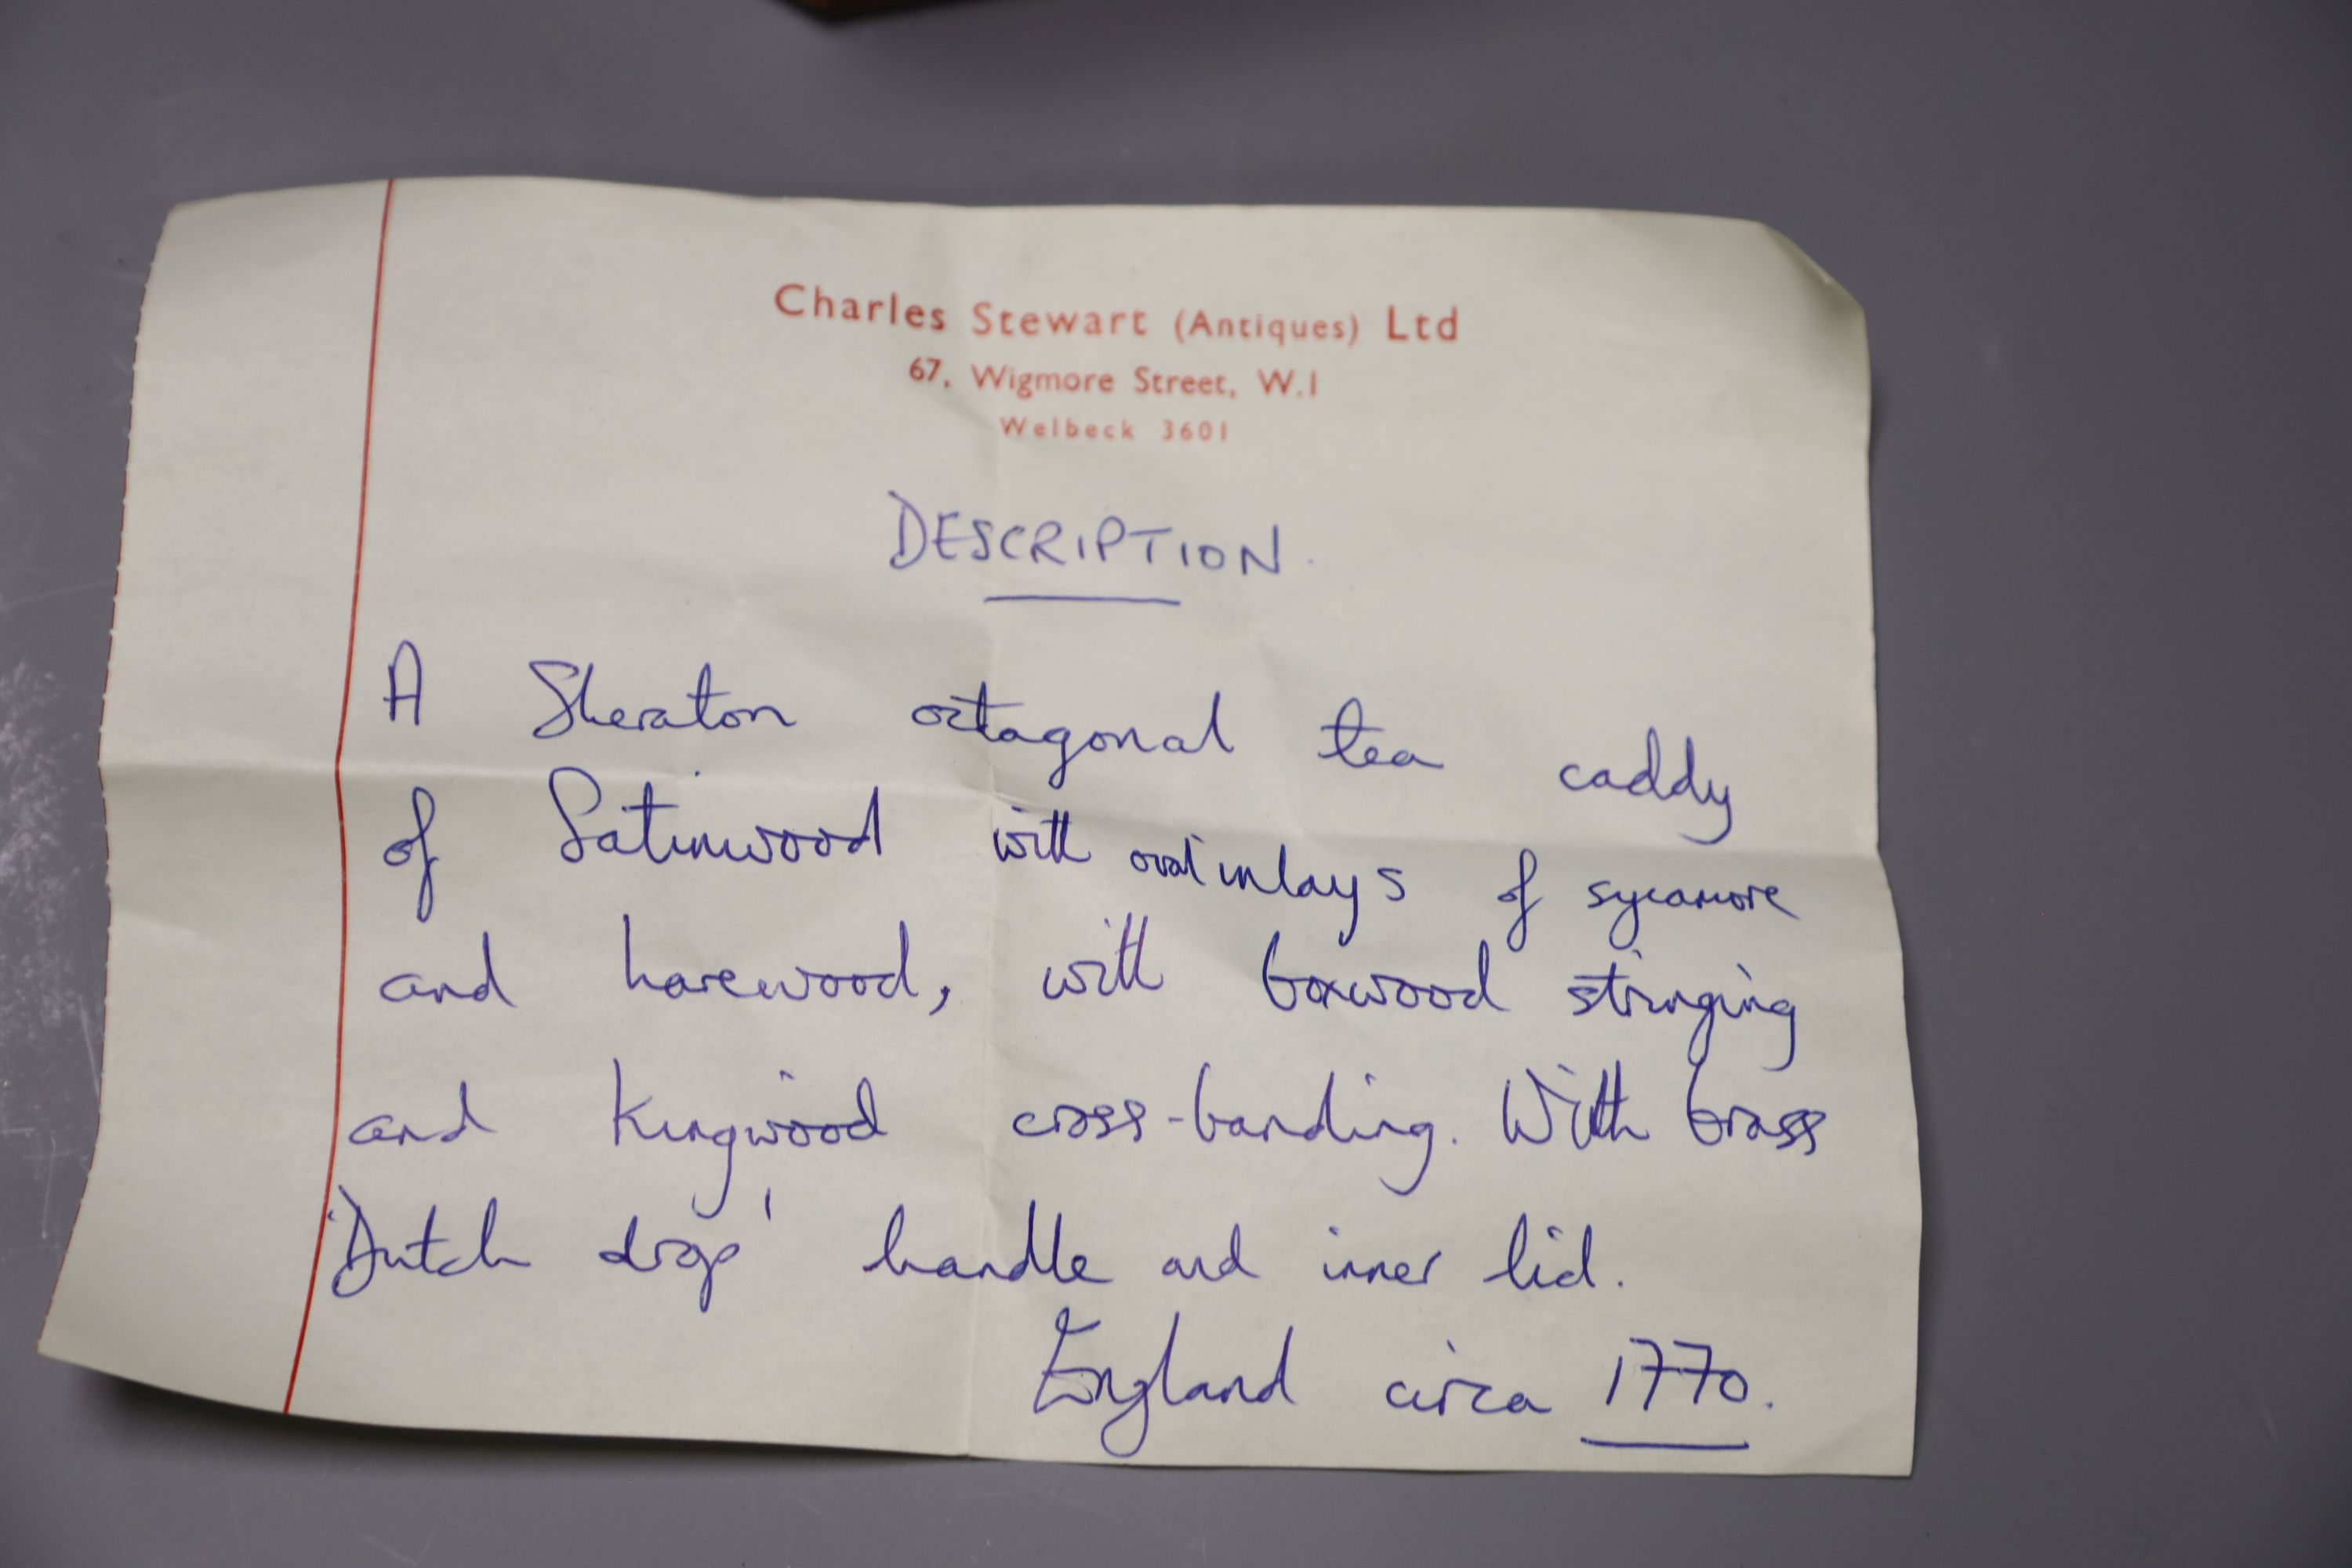 Charles Stewart (Antiques) Ltd
67, Wigmore Street, W.1
Welbeck 3601
DESCRIPTION.
A Sheraton octagonal tea caddy
of Satinwood with oval inlays of sycamore
and harewood, with boxwood stringing
and Kingwood cross-banding. With brass
'Dutch drop' handle and inner lid.
England circa 1770.